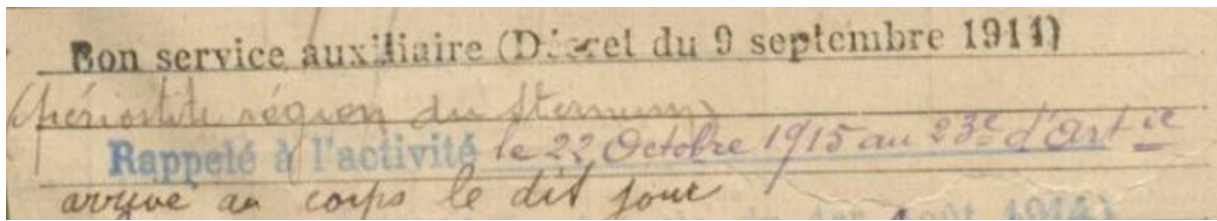 Bon service auxiliaire (Décret du 9 septembre 1914)
(périostite région du sternum)
Rappelé à l'activité le 22 Octobre 1915 au 23e d'Artie
arrivé au corps le dit jour
Août 1914)